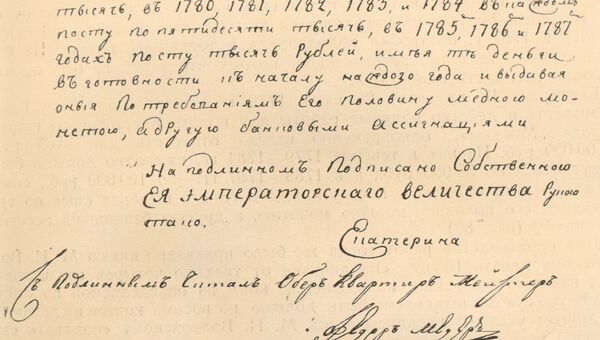 тысячь, въ 1780, 1781, 1782, 1783, и 1784 въ каждомъ
посту по пятидесяти тысячь, въ 1785, 1786 и 1787
годахъ по сту тысячь Рублей, имѣя тѣ деньги
въ готовности къ началу каждого года и выдавая
оныя По требованіямъ Его половину мѣдною мо-
нетою, а другую банковыми ассигнаціями.
На подлинномъ подписано Собственною
ЕЯ императорскаго величества Рукою
тако.
Екатерина
Съ Подлиннымъ Читалъ Оберъ Квартиръ Мейстеръ
Ѳедоръ